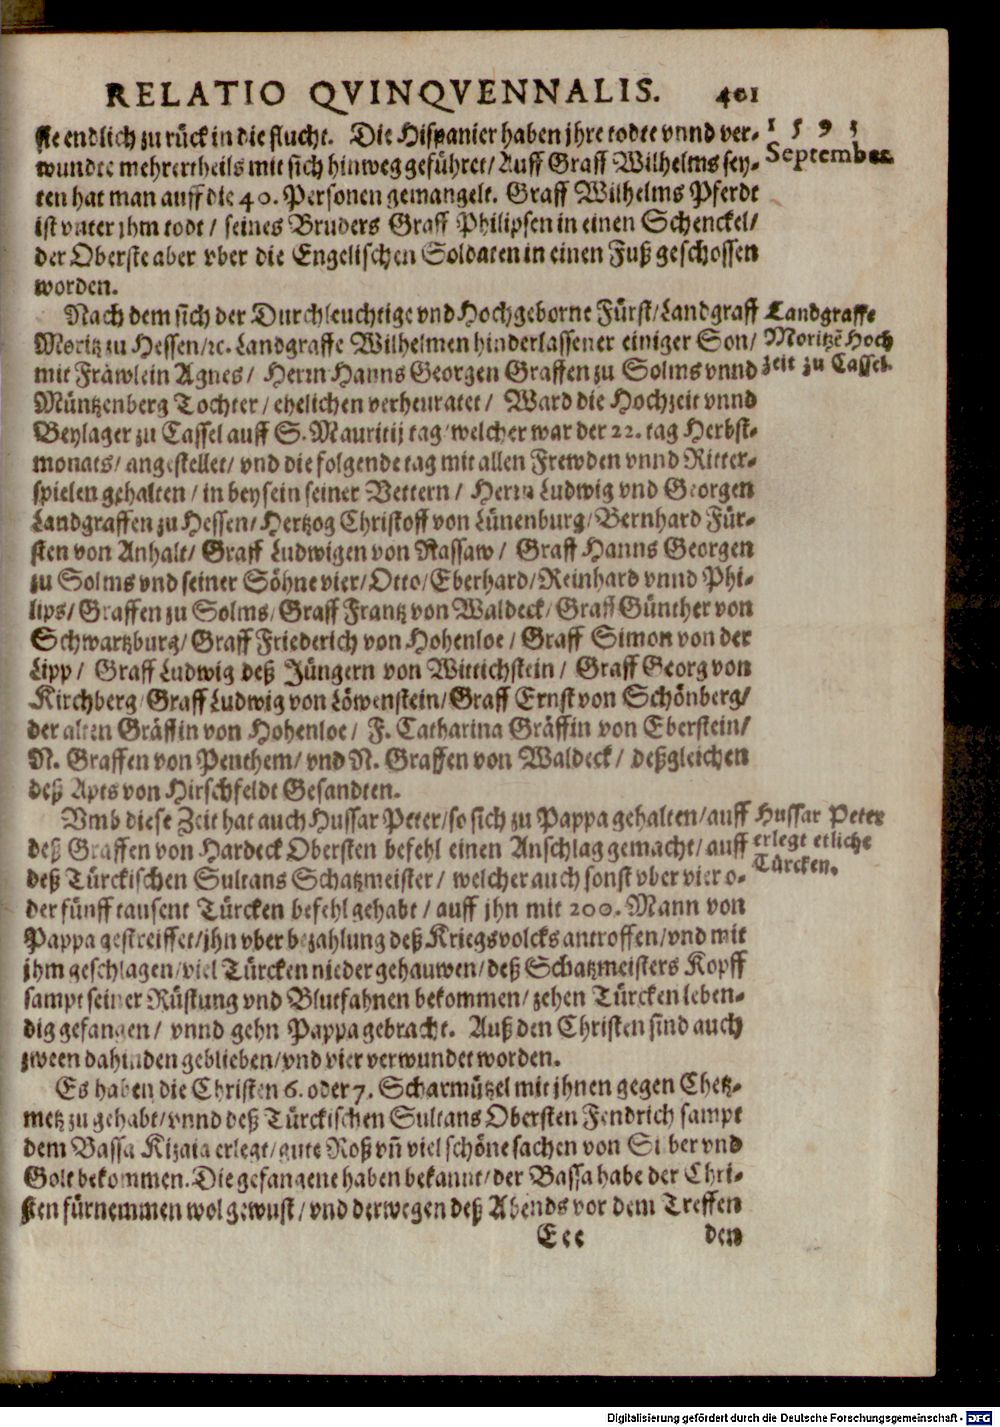 RELATIO QVINQVENNALIS. 401
1593
September.
sie endlich zu rück in die flucht. Die Hispanier haben jhre todte vnnd ver-
wundte mehrertheils mit sich hinweg geführet/ Auff Graff Wilhelms sey-
ten hat man auff die 40. Personen gemangelt. Graff Wilhelms Pferdt
ist vnter jhm todt / seines Bruders Graff Philipsen in einen Schenckel/
der Oberste aber vber die Engelischen Soldaten in einen Fuß geschossen
worden.
Nach dem sich der Durchleuchtige vnd Hochgeborne Fürst/ Landgraff
Moritz zu Hessen/ ꝛc. Landgraffe Wilhelmen hinderlassener einiger Son/
mit Fräwlein Agnes/ Herrn Hanns Georgen Graffen zu Solms vnnd
Müntzenberg Tochter / ehelichen verheuratet / Ward die Hochzeit vnnd
Beylager zu Cassel auff S. Mauritij tag/ welcher war der 22. tag Herbst-
monats/ angestellet/ vnd die folgende tag mit allen Frewden vnnd Ritter-
spielen gehalten / in beysein seiner Vettern / Herrn Ludwig vnd Georgen
Landgraffen zu Hessen/ Hertzog Christoff von Lünenburg/ Bernhard Für-
sten von Anhalt/ Graff Ludwigen von Nassaw / Graff Hanns Georgen
zu Solms vnd seiner Söhne vier/ Otto/ Eberhard/ Reinhard vnnd Phi-
lips/ Graffen zu Solms/ Graff Frantz von Waldeck/ Graff Günther von
Schwartzburg/ Graff Friederich von Hohenloe / Graff Simon von der
Lipp / Graff Ludwig deß Jüngern von Wittichstein / Graff Georg von
Kirchberg/ Graff Ludwig von Löwenstein/ Graff Ernst von Schönberg/
der alten Gräffin von Hohenloe / F. Catharina Gräffin von Eberstein/
N. Graffen von Penthem/ vnd N. Graffen von Waldeck / deßgleichen
deß Apts von Hirschfeldt Gesandten.
Landgraffe
Moritzẽ Hoch
zeit zu Cassel.
Vmb diese Zeit hat auch Hussar Peter/ so sich zu Pappa gehalten/ auff
deß Graffen von Hardeck Obersten befehl einen Anschlag gemacht/ auff
deß Türckischen Sultans Schatzmeister / welcher auch sonst vber vier o-
der fünff tausent Türcken befehl gehabt / auff jhn mit 200. Mann von
Pappa gestreiffet/ jhn vber bezahlung deß Kriegsvolcks antroffen/ vnd mit
jhm geschlagen/ viel Türcken nieder gehauwen/ deß Schatzmeisters Kopff
sampt seiner Rüstung vnd Blutfahnen bekommen/ zehen Türcken leben-
dig gefangen / vnnd gehn Pappa gebracht. Auß den Christen sind auch
zween dahinden geblieben/ vnd vier verwundet worden.
Hussar Peter
erlegt etliche
Türcken.
Es haben die Christen 6. oder 7. Scharmützel mit jhnen gegen Chetz-
metz zu gehabt/ vnnd deß Türckischen Sultans Obersten Fendrich sampt
dem Bassa Kizaia erlegt/ gute Roß vñ viel schöne sachen von Silber vnd
Golt bekommen. Die gefangene haben bekannt/ der Bassa habe der Chri-
sten fürnemmen wol gewust/ vnd derwegen deß Abends vor dem Treffen
Eee den
Digitalisierung gefördert durch die Deutsche Forschungsgemeinschaft - DFG